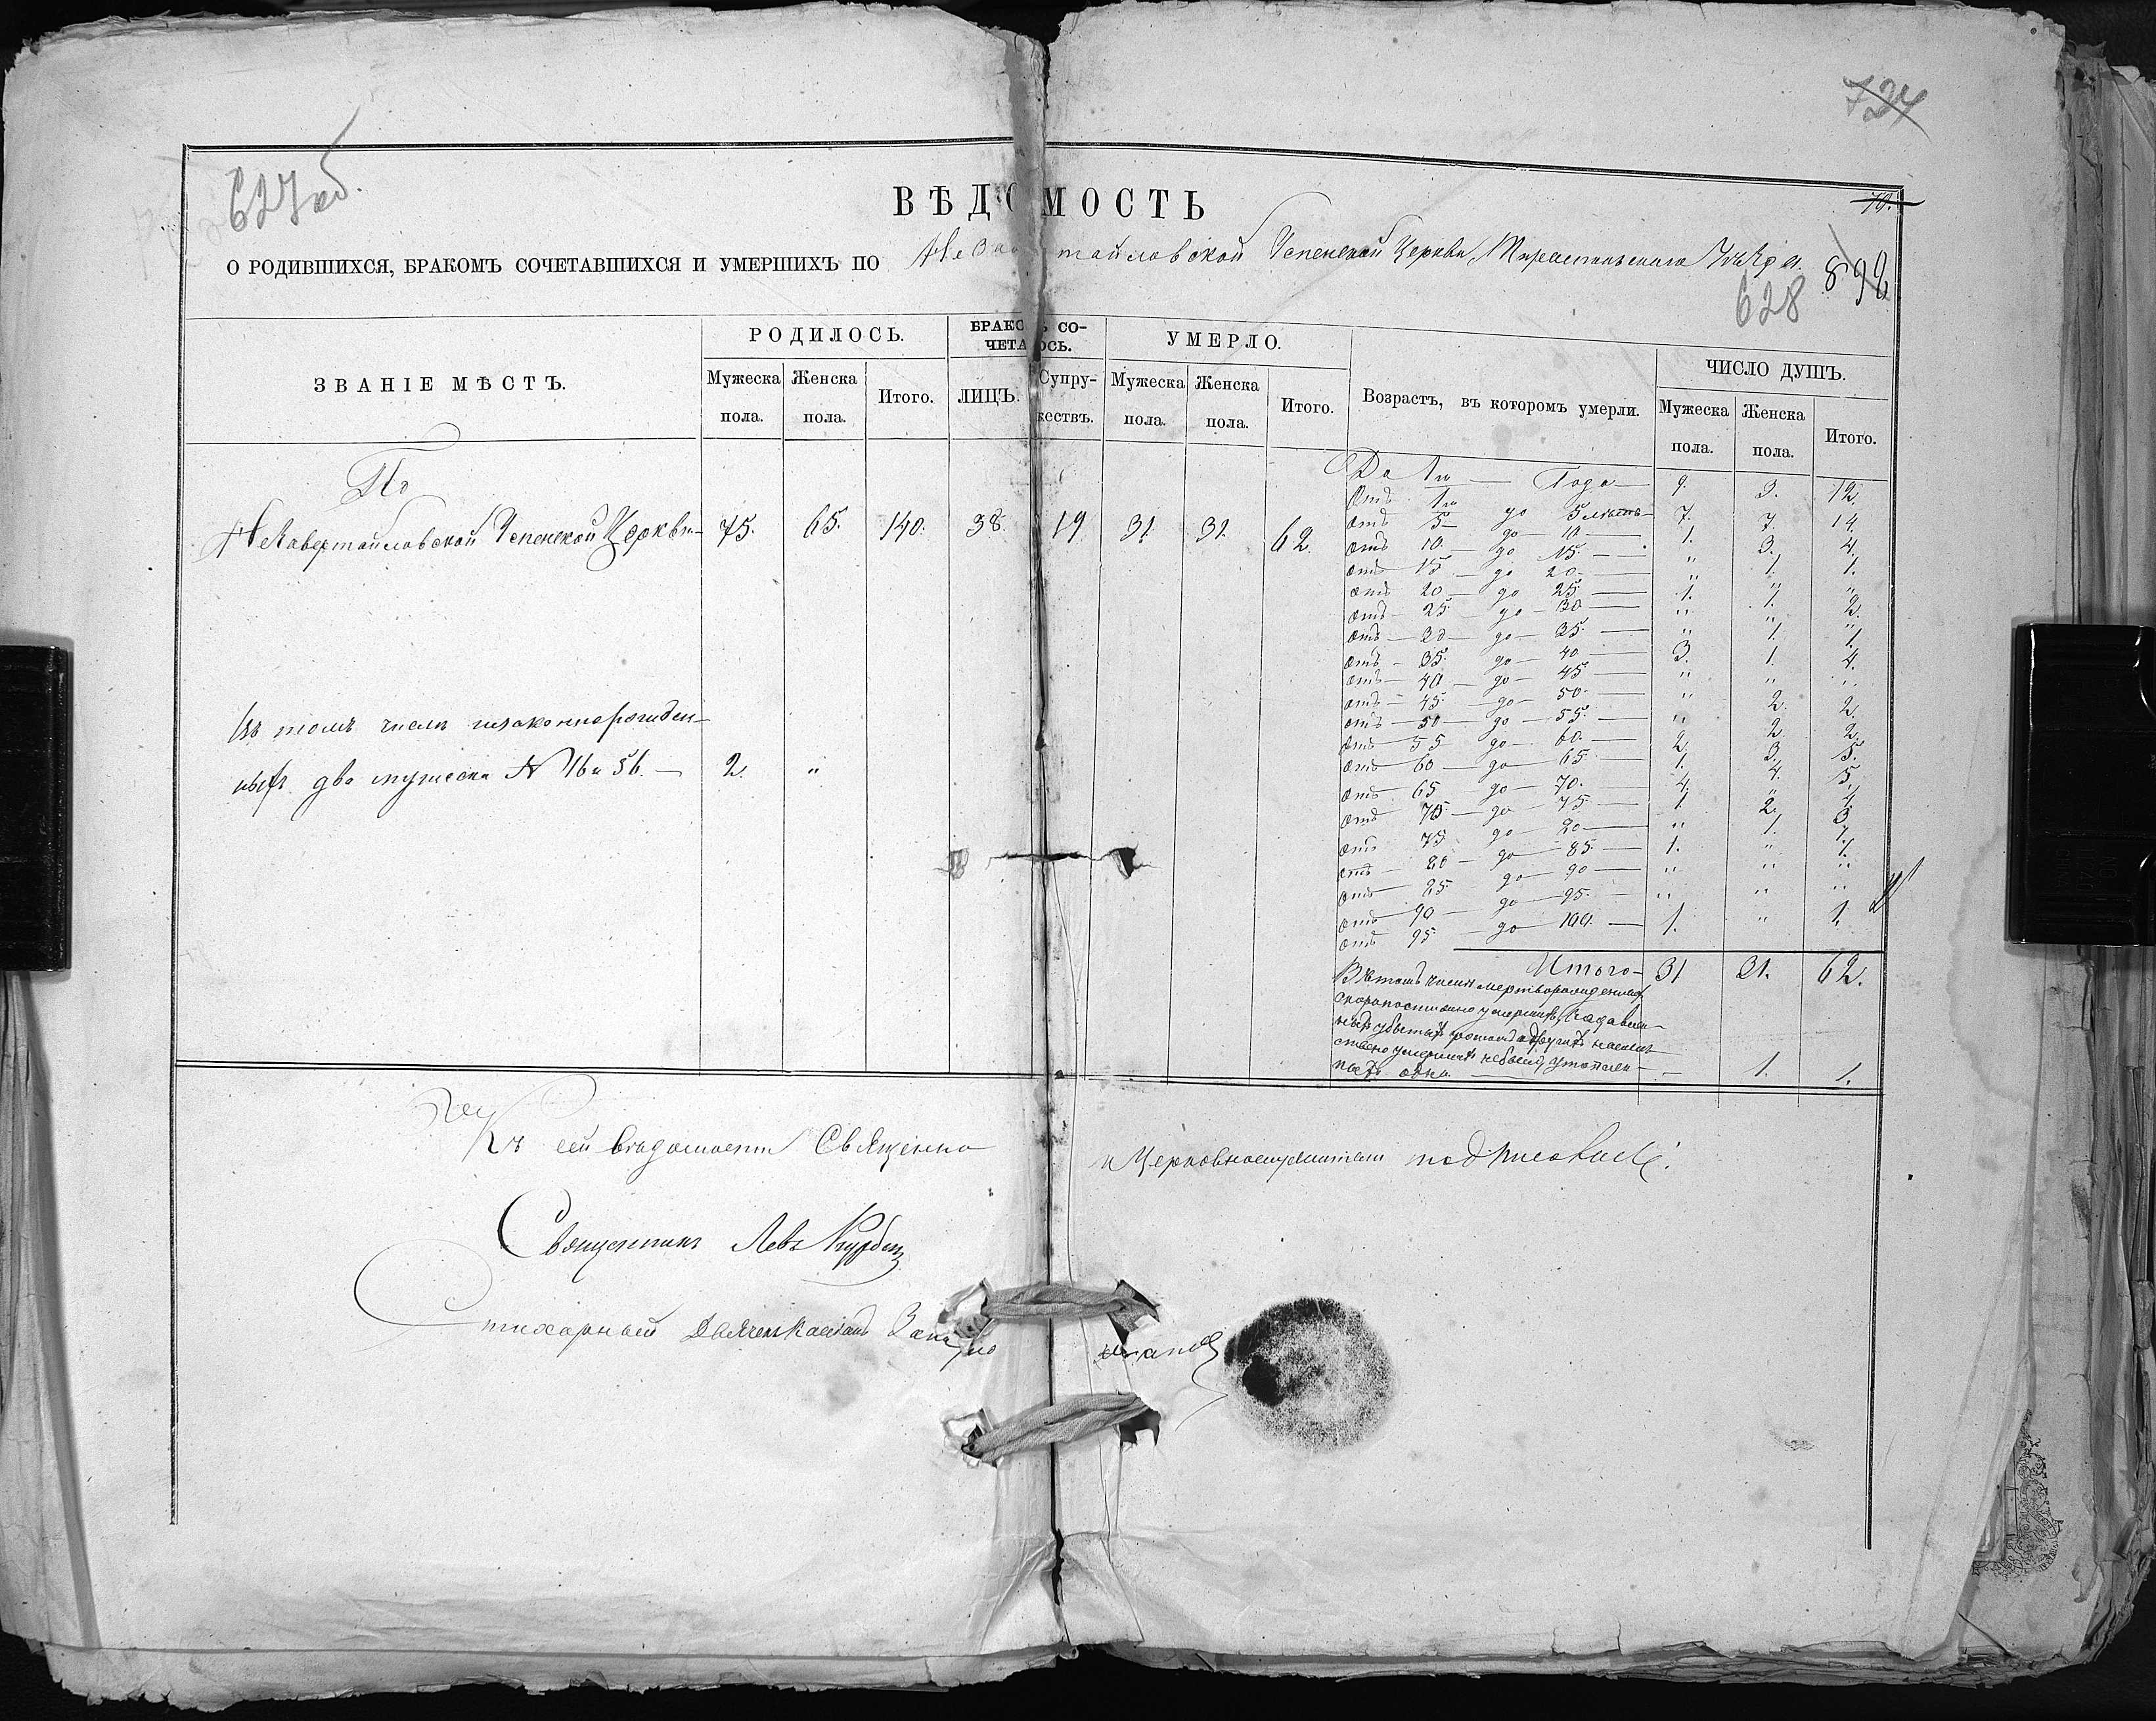 724
627 об.
ВѢДОМОСТЬ
70.
О РОДИВШИХСЯ, БРАКОМЪ СОЧЕТАВШИХСЯ И УМЕРШИХЪ ПО Успенской Церкви, Тираспольскаго Уѣзда.
892
628
ЗВАНІЕ МѢСТЪ.
РОДИЛОСЬ.
Мужеска пола.
Женска пола.
Итого.
БРАКОМЪ СОЧЕТАЛОСЬ.
ЛИЦЪ.
Супружествъ.
УМЕРЛО.
Мужеска пола.
Женска пола.
Итого.
Возрастъ, въ которомъ умерли.
ЧИСЛО ДУШЪ.
Мужеска пола.
Женска пола.
Итого.
По
Успенской Церкви 75. 65. 140. 38. 19 31. 31. 62.
Въ томъ числѣ незаконнорожден-
ныхъ два мужеска № 16 и 56. 2. "
До 1го Года 9. 3. 12.
Отъ 1го до 5 лѣтъ 7. 7. 14.
Отъ 5 до 10 1. 3. 4.
Отъ 10 до 15 " 1. 1.
Отъ 15 до 20 " " "
Отъ 20 до 25 1. 1. 2.
Отъ 25 до 30 " " "
Отъ 30 до 35 " 1. 1.
Отъ 35 до 40 3. 1. 4.
Отъ 40 до 45 " " "
Отъ 45 до 50 " 2. 2.
Отъ 50 до 55 " 2. 2.
Отъ 55 до 60 2. 3. 5.
Отъ 60 до 65 1. 4. 5.
Отъ 65 до 70 4. " 4.
Отъ 70 до 75 1. 2. 3.
Отъ 75 до 80 " 1. 1.
Отъ 80 до 85 1. " 1.
Отъ 85 до 90 " " "
Отъ 90 до 95 " " "
Отъ 95 до 100 1. " 1.
Итого 31 31. 62.
Въ томъ числѣ мертворожденныхъ,
скоропостижно умершихъ,
ныхъ убитыхъ громомъ и другихъ
умершихъ небыло, утоплен-
ныхъ одна. 1. 1.
Къ сей вѣдомости Священно и Церковнослужители подписались:
Священникъ Левъ
Стихарный